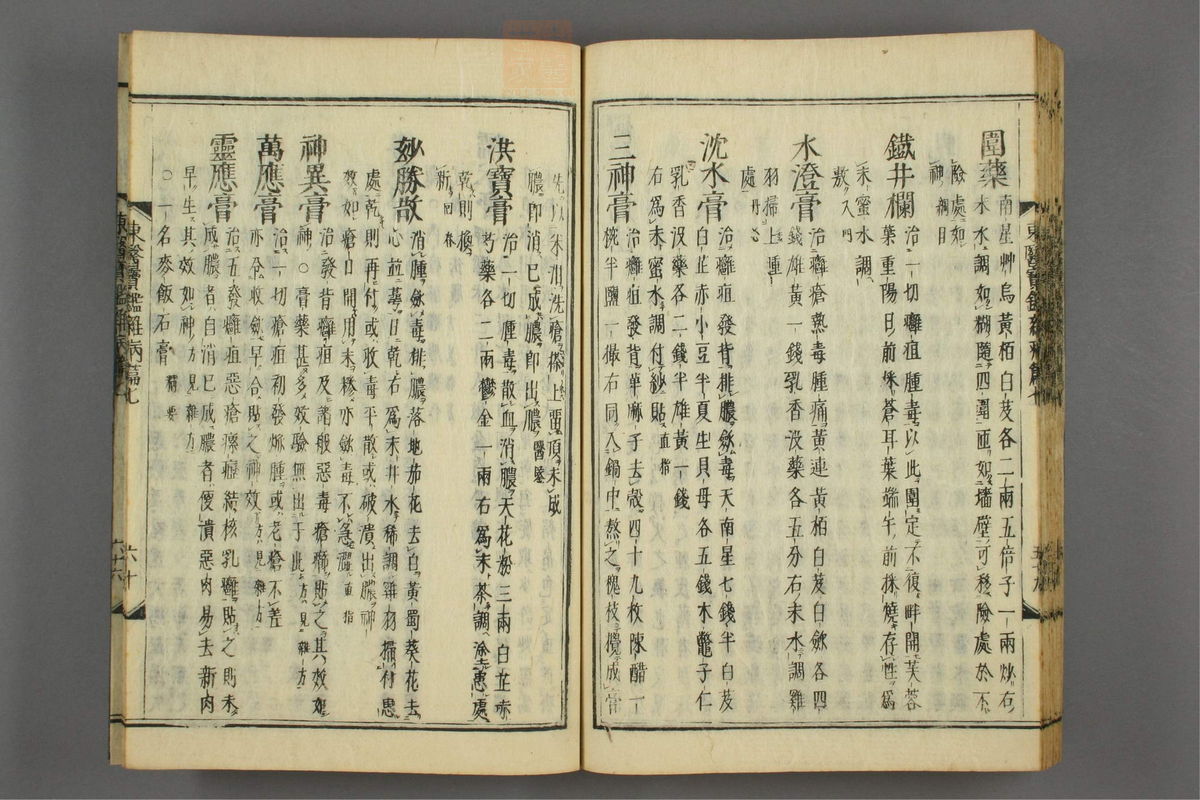 圍藥 南星艸烏黃栢白芨各二兩五倍子一兩炒右
末水調如糊隨四圍匝如墻壁可移險處於不
險處如
神 綱目
鐵井欄 治一切癰疽腫毒以此圍定不復畔開芙蓉
葉重陽日前採蒼耳葉端午前採燒存性爲
末蜜水調
敷 入門
水澄膏 治癰瘡熱毒腫痛黃連黃栢白芨白斂各四
錢雄黃一錢乳香沒藥各五分右末水調雞
羽掃上腫
處 丹心
沈水膏 治癰疽發背排膿斂毒天南星七錢半白芨
白芷赤小豆半夏生貝母各五錢木鱉子仁
乳香沒藥各二錢半雄黃一錢
右爲末蜜水調付紗貼 直指
三神膏 治癰疽發背萆麻子去殼四十九枚陳醋一
椀半鹽一撮右同入鍋中熬之槐枝攪成膏
先以米泔洗瘡搽上留頂未成
膿卽消已成膿卽出膿 醫鑒
洪寶膏 治一切腫毒散血消膿天花粉三兩白芷赤
芍藥各二兩鬱金一兩右爲末茶調冷塗患處
乾則換
新 回春
妙勝散 消腫斂毒排膿落地茄花去白黃蜀葵花去
心並萼日乾右爲末井水稀調雞羽掃付患
處乾則再付或收毒平散或破潰出膿神
效如瘡口開用末糝亦斂毒不急 直指
神異膏 治發背癰疽及諸般惡毒瘡癤貼之其效如
神○膏藥甚多效驗無出于此 方見雜方
萬應膏 治一切瘡疽初發焮腫或老瘡不差
亦令收斂早合貼之神效 方見雜方
靈應膏 治五發癰疽惡瘡瘰癧結核乳癰貼之則未
成膿者自消已成膿者便潰惡肉易去新肉
早生其效如神 方見雜方
○一名麥飯石膏 精要
東醫寶鑑雜病篇七
六十